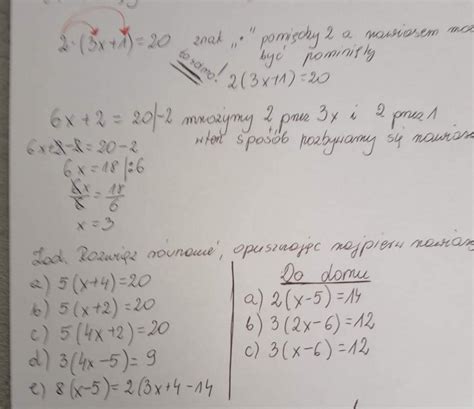 2·(3x+1)=20 znak „•" pomiędzy 2 a nawiasem
być pominięty
2(3x+1)=20
6x+2=20|-2 mnożymy 2 przez 3x i 2 przez 1
6x+2-2=20-2 w ten sposób pozbywamy się
6x=18|:6
6x/6=18/6
x=3
Zad. Rozwiąż równanie, opuszczając najpierw
a) 5(x+4)=20
b) 5(x+2)=20
c) 5(4x+2)=20
d) 3(4x-5)=9
e) 8(x-5)=2(3x+4-14
Do domu
a) 2(x-5)=14
b) 3(2x-6)=12
c) 3(x-6)=12